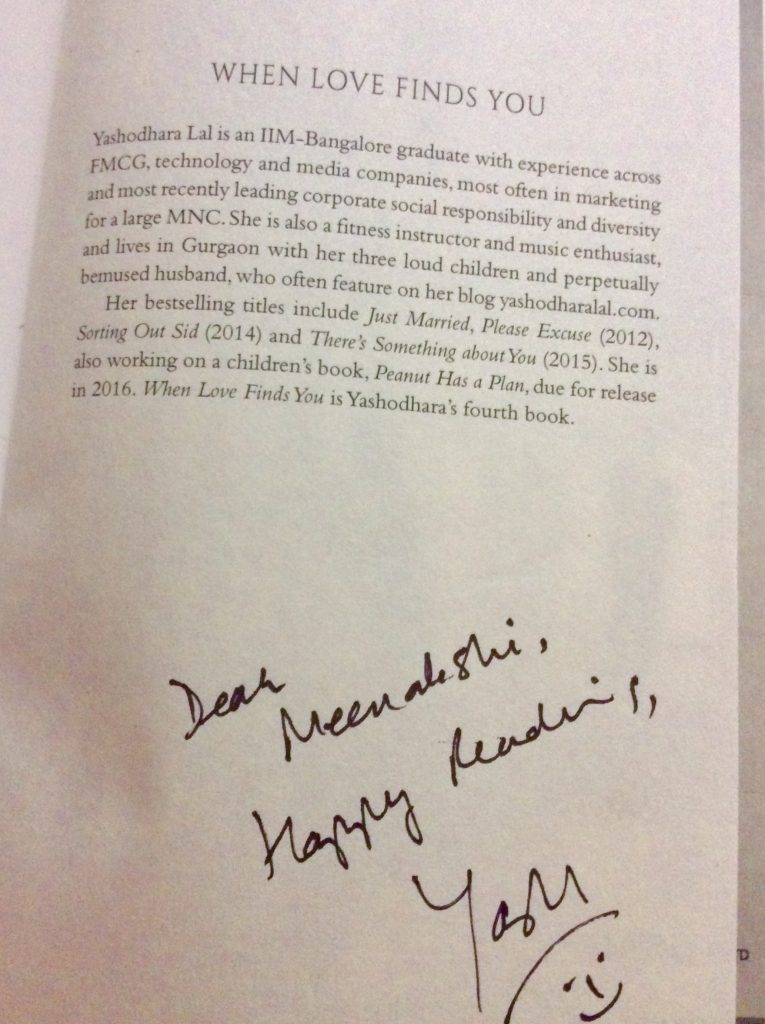 WHEN LOVE FINDS YOU
Yashodhara Lal is an IIM-Bangalore graduate with experience across
FMCG, technology and media companies, most often in marketing
and most recently leading corporate social responsibility and diversity
for a large MNC. She is also a fitness instructor and music enthusiast,
and lives in Gurgaon with her three loud children and perpetually
bemused husband, who often feature on her blog yashodharalal.com.
Her bestselling titles include Just Married, Please Excuse (2012),
Sorting Out Sid (2014) and There's Something about You (2015). She is
also working on a children's book, Peanut Has a Plan, due for release
in 2016. When Love Finds You is Yashodhara's fourth book.
Dear
Meenakshi,
Happy Reading,
Yash